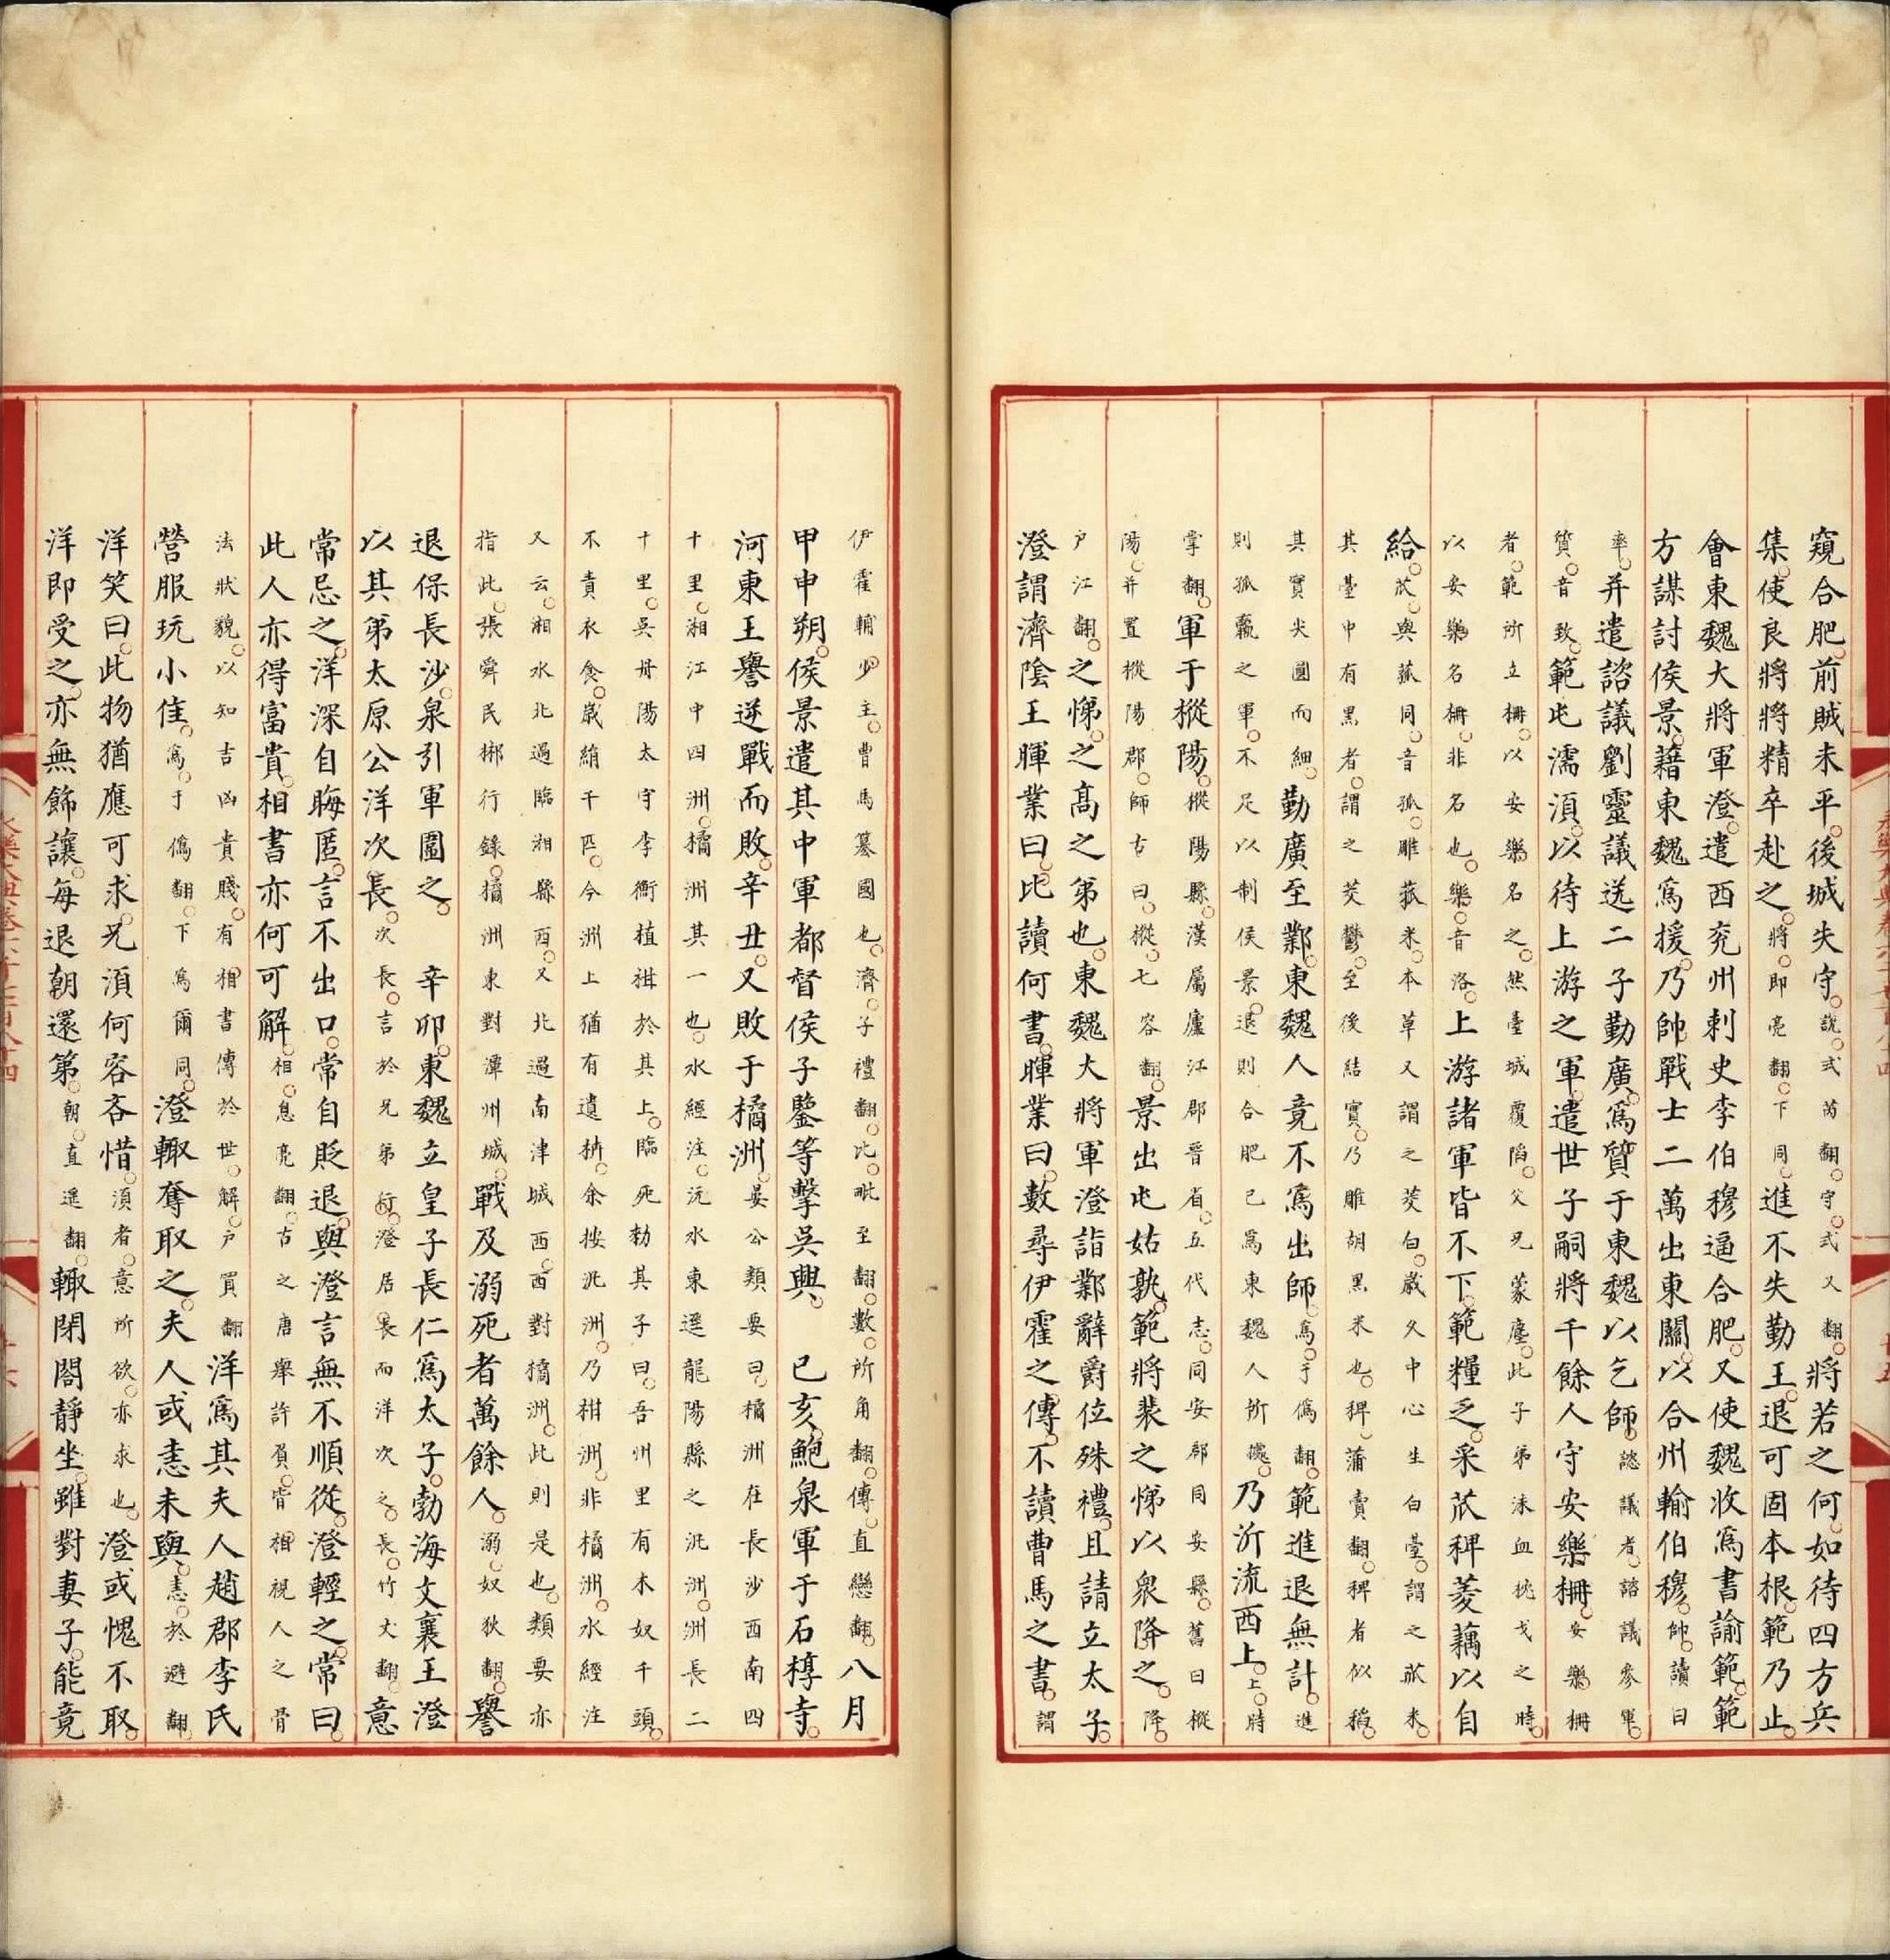 窺合肥前賊未平後城失守說式芮翻守式又翻將若之何如待四方兵
集使良將將精卒赴之將即亮翻下同進不失勤王退可固本根範乃止
會東魏大將軍澄遣西兖州刺史李伯穆逼合肥又使魏收爲書諭範範
方謀討侯景藉東魏爲援乃帥戰士二萬出東關以合州輸伯穆帥讀曰
率并遣諮議劉靈議送二子勤廣爲質于東魏以乞師諮議者諮議參軍
質音致範屯濡須以待上游之軍遣世子嗣將千餘人守安樂柵安樂柵
者範所立柵以安樂名之然臺城覆陷父兄蒙塵此子弟沬血枕戈之時
以安樂名柵非名也樂音洛上游諸軍皆不下範糧乏采苽稗菱藕以自
給苽與菰同音孤雕菰米本草又謂之茭白歲久中心生白臺謂之菰米
其臺中有黑者謂之茭鬱至後結實乃雕胡黑米也稗蒲賣翻稗者似稻
其實尖圓而細勤廣至鄴東魏人竟不爲出師爲于僞翻範進退無計進
則孤羸之軍不足以制侯景退則合肥已爲東魏人所據乃泝流西上上時
掌翻軍于樅陽樅陽縣漢屬廬江郡晉省五代志同安郡同安縣舊曰樅
陽并置樅陽郡師古曰樅七容翻景出屯姑孰範將裴之悌以衆降之降
户江翻之悌之髙之弟也東魏大將軍澄詣鄴辭爵位殊禮且請立太子
澄謂濟陰王暉業曰比讀何書暉業曰數尋伊霍之傳不讀曹馬之書謂
伊霍輔少主曹馬簒國也濟子禮翻比毗至翻數所角翻傳直戀翻八月
甲申朔侯景遣其中軍都督侯子鑒等擊吳興 已亥鮑泉軍于石椁寺
河東王譽逆戰而敗辛丑又敗于橘洲晏公類要曰橘洲在長沙西南四
十里湘江中四洲橘洲其一也水經注沅水東逕龍陽縣之汜洲洲長二
十里吳丹陽太守李衡植柑於其上臨死勑其子曰吾州里有木奴千頭
不責衣食歲絹千匹今洲上猶有遺枿余按汜洲乃柑洲非橘洲水經注
又云湘水北過臨湘縣西又北過南津城西西對橘洲此則是也類要亦
指此張舜民郴行錄橘洲東對潭州城戰及溺死者萬餘人溺奴狄翻譽
退保長沙泉引軍圍之 辛卯東魏立皇子長仁爲太子勃海文襄王澄
以其弟太原公洋次長次長言於兄弟行澄居長而洋次之長竹丈翻意
常忌之洋深自晦匿言不出口常自貶退與澄言無不順從澄輕之常曰
此人亦得富貴相書亦何可解相息亮翻古之唐舉許負皆相視人之骨
法狀貌以知吉凶貴賤有相書傳於世解户買翻洋爲其夫人趙郡李氏
營服玩小佳爲于僞翻下爲爾同澄輒奪取之夫人或恚未與恚於避翻
洋笑曰此物猶應可求兄須何容吝惜須者意所欲亦求也澄或愧不取
洋即受之亦無飾讓每退朝還第朝直遥翻輒閉閤靜坐雖對妻子能竟